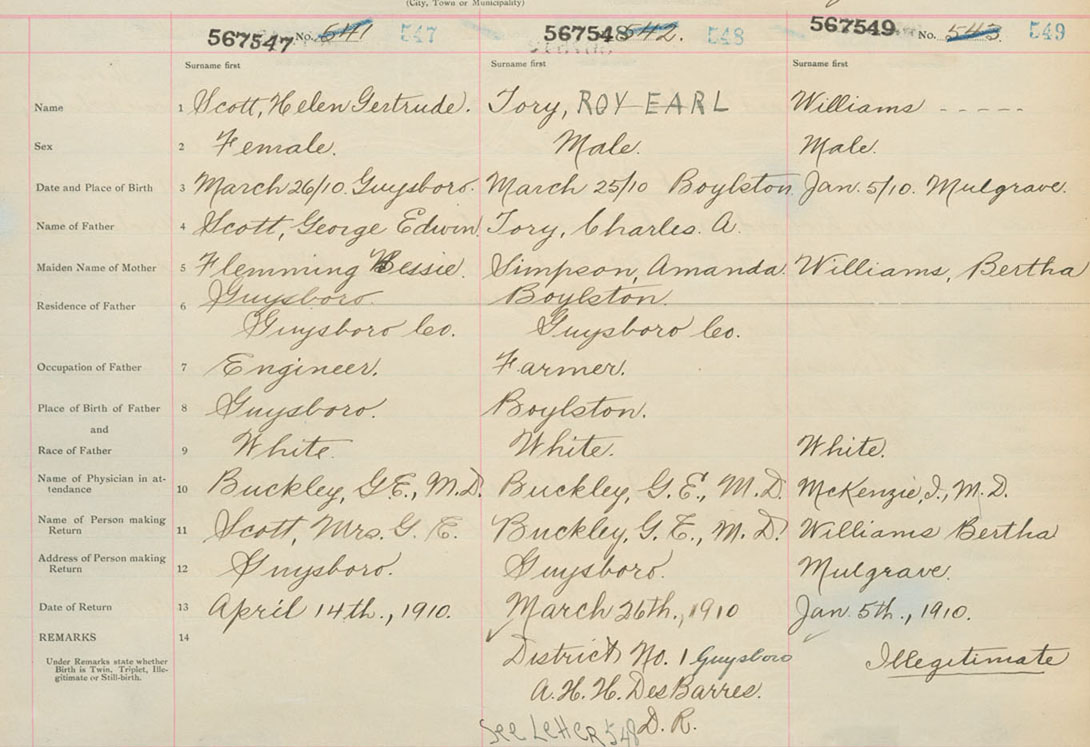 (City, Town or Municipality)
567547 No. 541 547 567548 542. 548 567549 No. 543 549
Surname first Surname first Surname first
Name 1 Scott, Helen Gertrude. Tory, ROY EARL Williams - - - - -
Sex 2 Female. Male. Male.
Date and Place of Birth 3 March 26/10. Guysboro. March 25/10 Boylston. Jan. 5/10. Mulgrave.
Name of Father 4 Scott, George Edwin. Tory, Charles. A.
Maiden Name of Mother 5 Flemming Bessie. Simpson, Amanda. Williams, Bertha
Residence of Father 6 Guysboro. Boylston.
Guysboro Co. Guysboro Co.
Occupation of Father 7 Engineer. Farmer.
Place of Birth of Father 8 Guysboro. Boylston.
and
Race of Father 9 White. White. White.
Name of Physician in at-
tendance 10 Buckley, G.E., M.D. Buckley, G.E., M.D. McKenzie, J., M.D.
Name of Person making
Return 11 Scott, Mrs. G. E. Buckley, G. E., M. D. Williams Bertha
Address of Person making
Return 12 Guysboro. Guysboro. Mulgrave.
Date of Return 13 April 14th., 1910. March 26th., 1910 Jan. 5th., 1910.
REMARKS 14
Under Remarks state whether
Birth is Twin, Triplet, Ille-
gitimate or Still-birth.
District No. 1 Guysboro Illegitimate
A. H. H. DesBarres.
D. R.
See LetteR 548